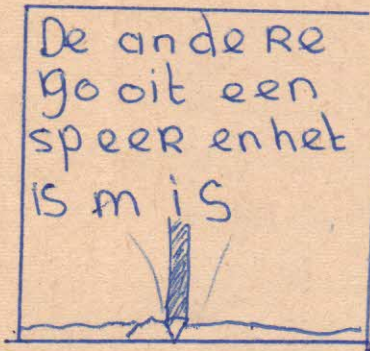 De andeRe
gooit een
speeR enhet
is mis